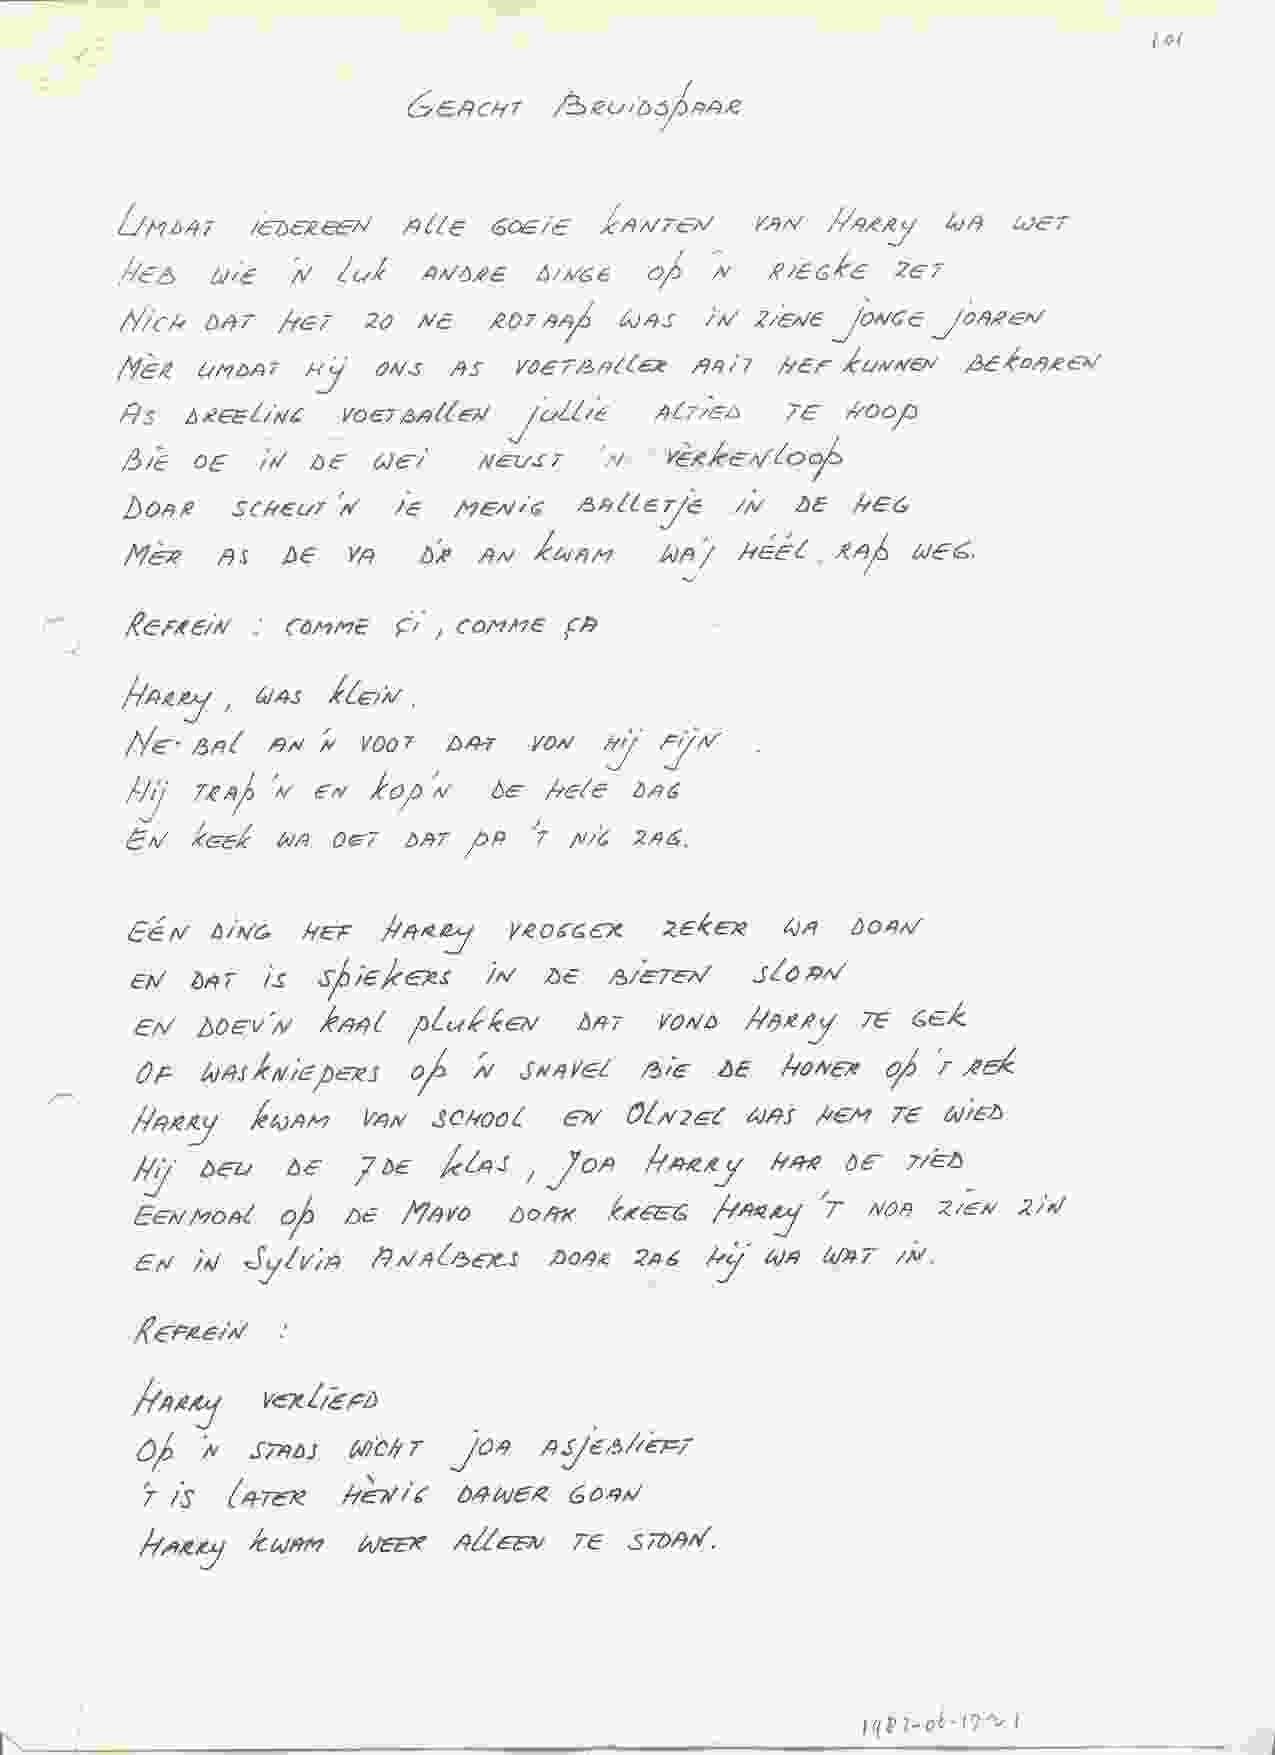 101
GEACHT BRUIDSPAAR
UMDAT IEDEREEN ALLE GOEIE KANTEN VAN HARRY WA WET
HEB WIE 'N LUK ANDRE DINGE OP 'N RIEGKE ZET
NICH DAT HET ZO NE ROTAAP WAS IN ZIENE JONGE JOAREN
MÈR UMDAT HIJ ONS AS VOETBALLER AAIT HEF KUNNEN BEKOAREN
AS DREELING VOETBALLEN JULLIE ALTIED TE HOOP
BIE OE IN DE WEI NEUST 'N VÈRKENLOOP
DOAR SCHEUT'N IE MENIG BALLETJE IN DE HEG
MÈR AS DE VA D'R AN KWAM WA'J HÉÉL RAP WEG.
REFREIN : COMME ÇI, COMME ÇA
HARRY, WAS KLEIN.
NE BAL AN 'N VOOT DAT VON HIJ FIJN.
HIJ TRAP'N EN KOP'N DE HELE DAG
EN KEEK WA OET DAT PA 'T NIG ZAG.
EÉN DING HEF HARRY VROGGER ZEKER WA DOAN
EN DAT IS SPIEKERS IN DE BIETEN SLOAN
EN DOEV'N KAAL PLUKKEN DAT VOND HARRY TE GEK
OF WASKNIEPERS OP 'N SNAVEL BIE DE HONER OP 'T REK
HARRY KWAM VAN SCHOOL EN OLNZEL WAS HEM TE WIED
HIJ DEU DE 7DE KLAS, JOA HARRY HAR DE TIED
EENMOAL OP DE MAVO DOAR KREEG HARRY 'T NOA ZIEN ZIN
EN IN SYLVIA ANALBERS DOAR ZAG HIJ WA WAT IN.
REFREIN :
HARRY VERLIEFD
OP 'N STADS WICHT JOA ASJEBLIEFT
'T IS LATER HÈNIG DAWER GOAN
HARRY KWAM WEER ALLEEN TE STOAN.